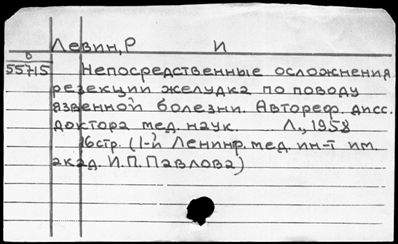 Левин, Р И
О
55715 Непосредственные осложнения
резекции желудка по поводу
язвенной болезни. Автореф. дисс.
доктора мед. наук. Л., 1958
16 стр. (1-й Ленингр. мед. ин-т им.
акад. И.П. Павлова)